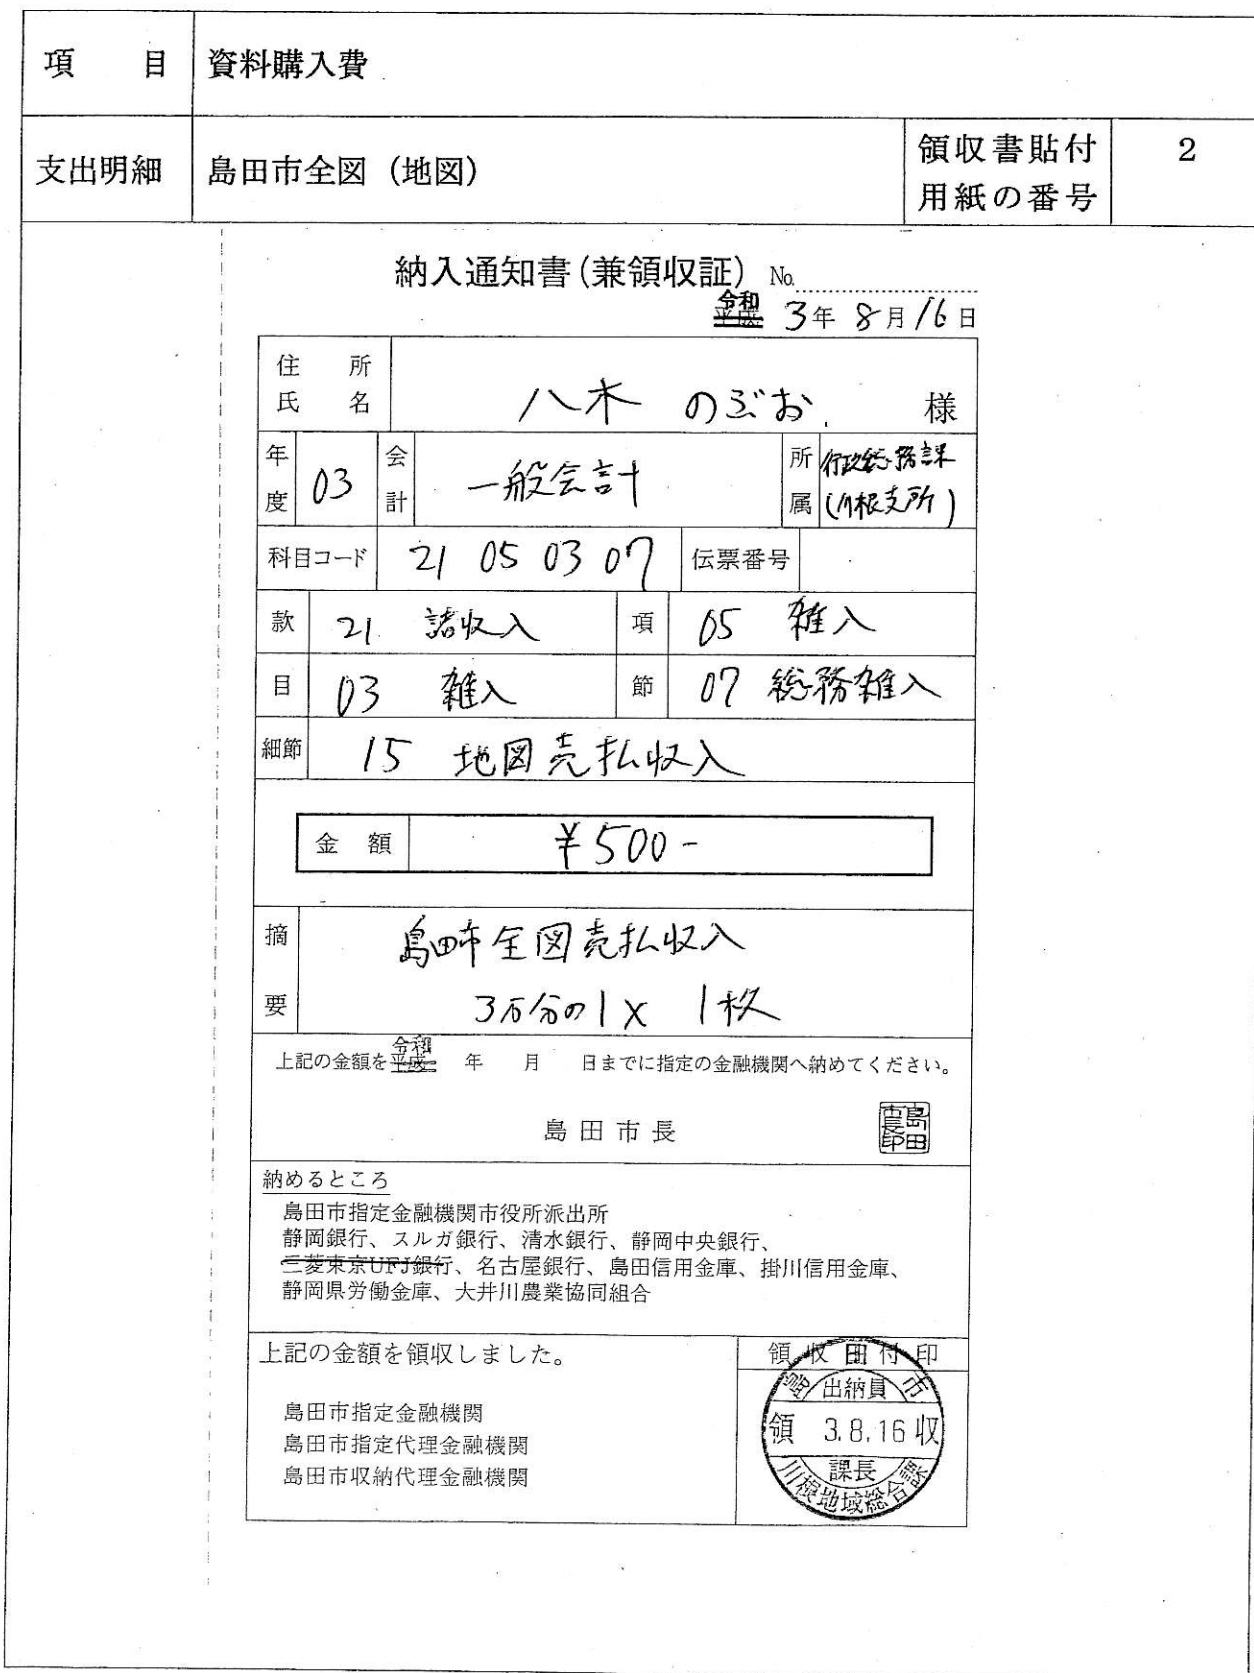 項　目　資料購入費
支出明細　島田市全図（地図）　領収書貼付用紙の番号　2
納入通知書（兼領収証）　№
令和 平成 3年 8月 16日
住所氏名　八木 のぶお 様
年度　03　会計　一般会計　所属　行政総務課（川根支所）
科目コード　21 05 03 07　伝票番号
款　21 諸収入　項　05 雑入
目　03 雑入　節　07 総務雑入
細節　15 地図売払収入
金額　¥500-
摘要　島田市全図売払収入
3万分の1 × 1枚
上記の金額を令和 平成　年　月　日までに指定の金融機関へ納めてください。
島田市長　島田市長印
納めるところ
島田市指定金融機関市役所派出所
静岡銀行、スルガ銀行、清水銀行、静岡中央銀行、
三菱東京UFJ銀行、名古屋銀行、島田信用金庫、掛川信用金庫、
静岡県労働金庫、大井川農業協同組合
上記の金額を領収しました。　領収日付印
島田市指定金融機関
島田市指定代理金融機関
島田市収納代理金融機関
島田市
出納員
領 3.8.16 収
課長
川根地域総合課